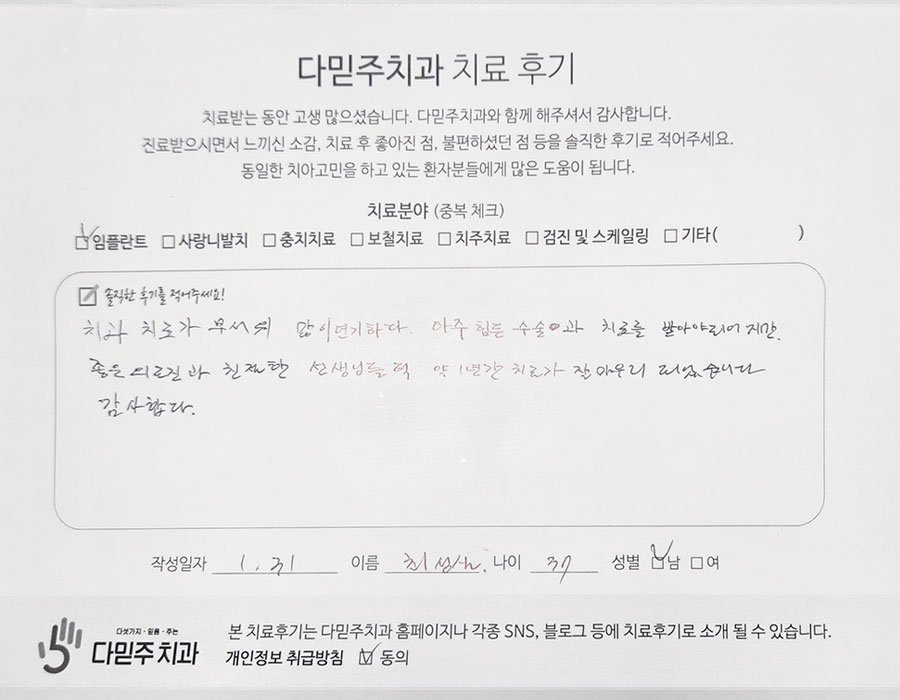 다믿주치과 치료 후기
치료받는 동안 고생 많으셨습니다. 다믿주치과와 함께 해주셔서 감사합니다.
진료받으시면서 느끼신 소감, 치료 후 좋아진 점, 불편하셨던 점 등을 솔직한 후기로 적어주세요.
동일한 치아고민을 하고 있는 환자분들에게 많은 도움이 됩니다.
치료분야 (중복 체크)
☑임플란트 □사랑니발치 □충치치료 □보철치료 □치주치료 □검진 및 스케일링 □기타( )
솔직한 후기를 적어주세요!
치과 치료가 무서워 많이 연기하다. 아주 힘든 수술과 치료를 받아야되어지만.
좋은 의료진과 친절한 선생님들 덕 약 1년간 치료가 잘 마무리 되었습니다
감사합다.
작성일자 1. 31 이름 최 나이 37 성별 ☑남 □여
다섯가지·믿음·주는
다믿주치과
본 치료후기는 다믿주치과 홈페이지나 각종 SNS, 블로그 등에 치료후기로 소개 될 수 있습니다.
개인정보 취급방침 ☑동의